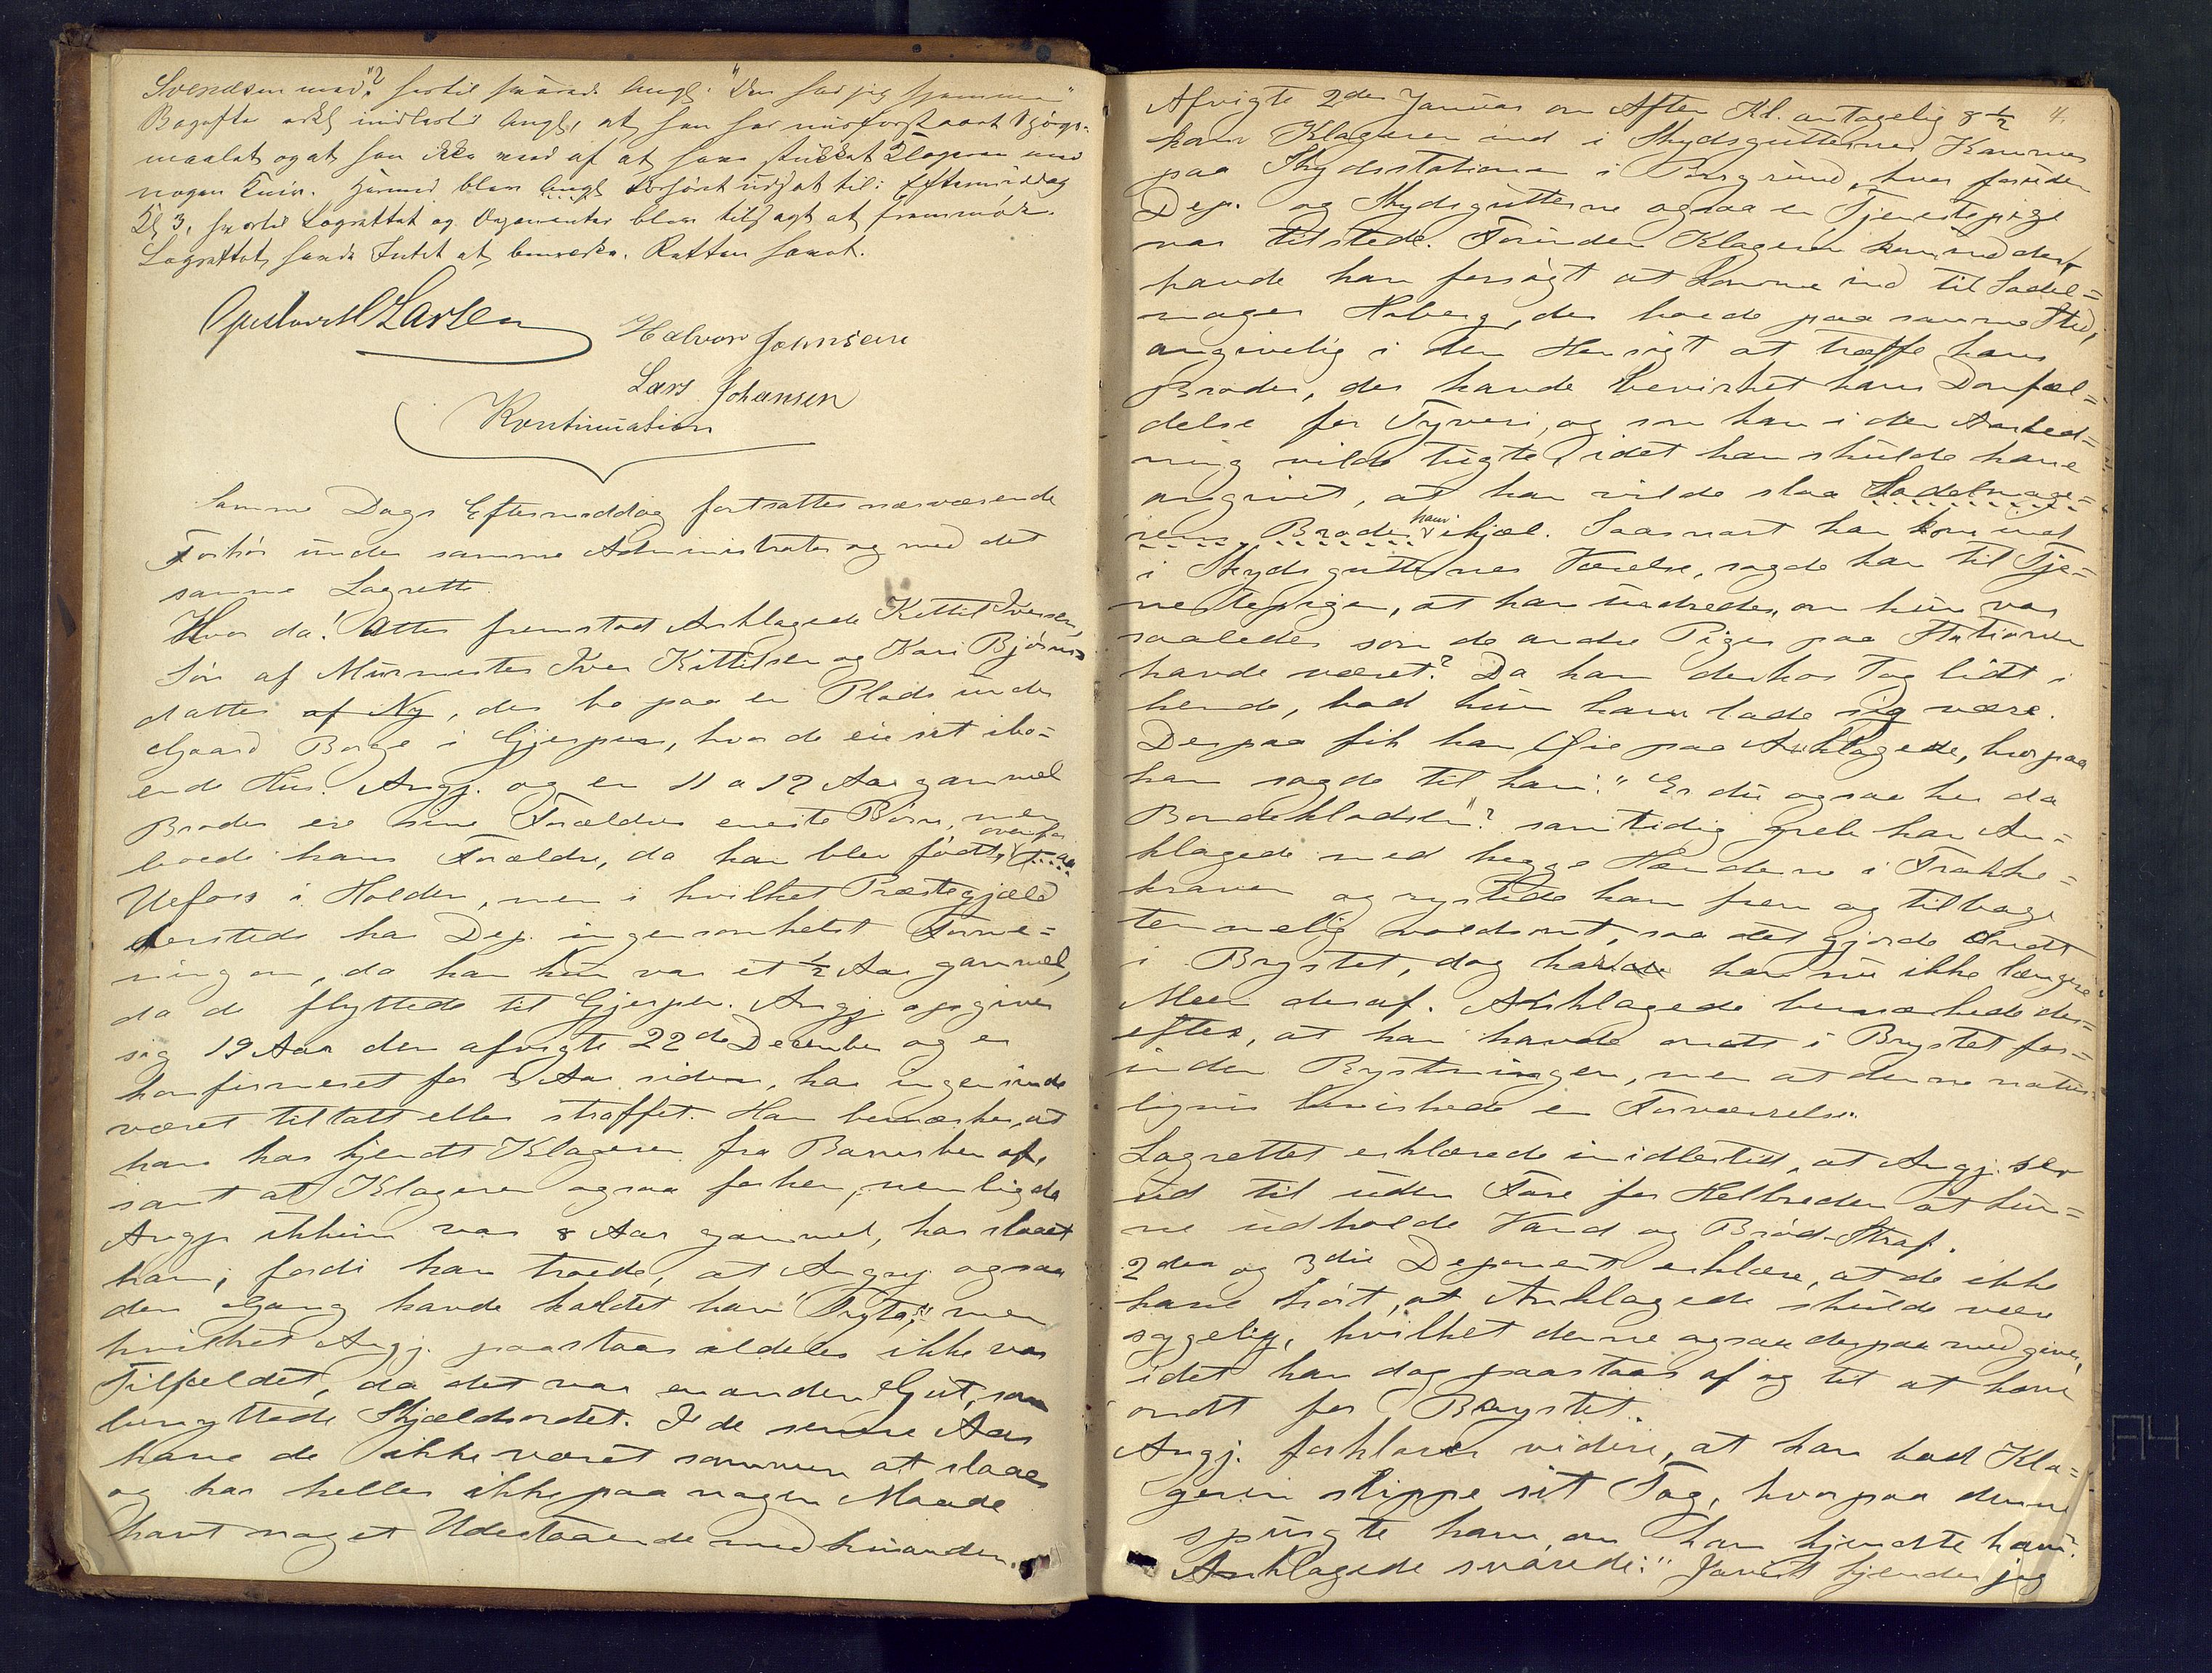 Svendsen med"? hertil svarede Angj. "Den har jeg hjemme"
Bagefter udl indlod Angj. at han har misforstaaet Spørgs-
maalet og at han ikke ved af at have stukket Klageren med
nogen Kniv. Hermed blev Angj. Forhört udsat til Eftermiddag
Kl 3, hvortil Lagrettet og Deponenter blev tilsagt at fremmöde.
Lagrettet havde Intet at bemærke. Retten hævet.
Larsen Halvor Johnsen
Lars Johansen
Kontinuation
Samme Dags Eftermiddag fortsattes nærværende
Forhör under samme Administrator og med det
samme Lagrette.
Hvor da! Atter fremstod Anklagede Kittil Iversen,
Sön af Murmester Iver Kittilsen og Kari Björns-
datter af Ny, der bo paa en Plads under
Gaard Borge i Gjerpen, hvor de eie sit ibo-
ende Hus. Angj. og en 11 a 12 Aar gammel
Broder ere sine Forældres eneste Börn, men
boede hans Forældre, da han blev födt, ovenfor
Ulefoss i Holden, men i hvilket Præstegjæld
dersteds har Dep. ingensomhelst Forme-
ning om, da han kun var et ½ Aar gammel,
da de flyttede til Gjerpen. Angj. opgiver
sig 19 Aar den afvigte 22de December og er
konfirmeret for 3 Aar siden, har ingensinde
været tiltalt eller straffet. Han bemærker, at
han har kjendt Klageren fra Barnsben af,
samt at Klageren ogsaa forhen, nemlig da
Angj. ikkun var 8 Aar gammel, har slaaet
ham, fordi han troede, at Angj. ogsaa
den Gang havde kaldet ham "Fugta", men
hvilket Angj. paastaar aldeles ikke var
Tilfældet, da det var en anden Gut, som
benyttede Skjældsordet. I de senere Aar
have de ikke været sammen at slaaes
og har heller ikke paa nogen Maade
havt noget Udestaaende med hinanden.
4.
Afvigte 2den Januar om Aften Kl. antagelig 8 ½
kom Klageren ind i Skydsgutternes Kammer
paa Skydsstationen i Porsgrund, hvor foruden
Dep. og Skydsgutterne ogsaa en Tjenestepige
var tilstede. Forinden Klageren kom ind der,
havde han forsögt at komme ind til Sadel=
mager Hoberg, der boede paa samme Sted,
angivelig i den Hensigt at træffe hans
Broder, der havde bevirket hans Domfæl=
delse for Tyveri, og som han i den Anled=
ning vilde tugte, idet han skulde have
angivet, at han vilde slaa Sadelmage=
rens Broder ham ihjæl. Saasnart han kom ind
i Skydsgutternes Værelse, sagde han til Tje=
nestepigen, at han undredes, om hun var
saaledes som de andre Piger paa Stationen
havde været? Da han derhos tog lidt i
hende, bad hun ham lade sig være.
Derpaa fik han Öie paa Anklagede, hvorpaa
han sagde til ham: "Er du ogsaa her da
Bondekladsen"? samtidig greb han An=
klagede med begge Hænderne i Frakke=
kraven og rystede ham frem og tilbage
temmelig voldsomt, saa det gjorde ondt
i Brystet, dog havde han nu ikke længere
Meen deraf. Anklagede bemærkede der=
efter, at han havde ondt i Brystet for=
inden Rystningen, men at denne natur-
ligvis bevirkede en Forværrelse.
Lagrettet erklærede imidlertid, at Angj. ser
ud til uden Fare for Helbreden at kun=
ne udholde Vand og Bröd-Straf.
2den og 3die Deponent erklære, at de ikke
have hört, at Anklagede skulde være
sygelig, hvilket denne ogsaa derpaa medgiver,
idet han dog paastaar af og til at have
ondt for Brystet.
Angj. forklarer videre, at han bad Kla=
geren slippe sit Tag, hvorpaa denne
spurgte ham, om han kjendte ham?
Anklagede svarede: "Javist kjender jeg